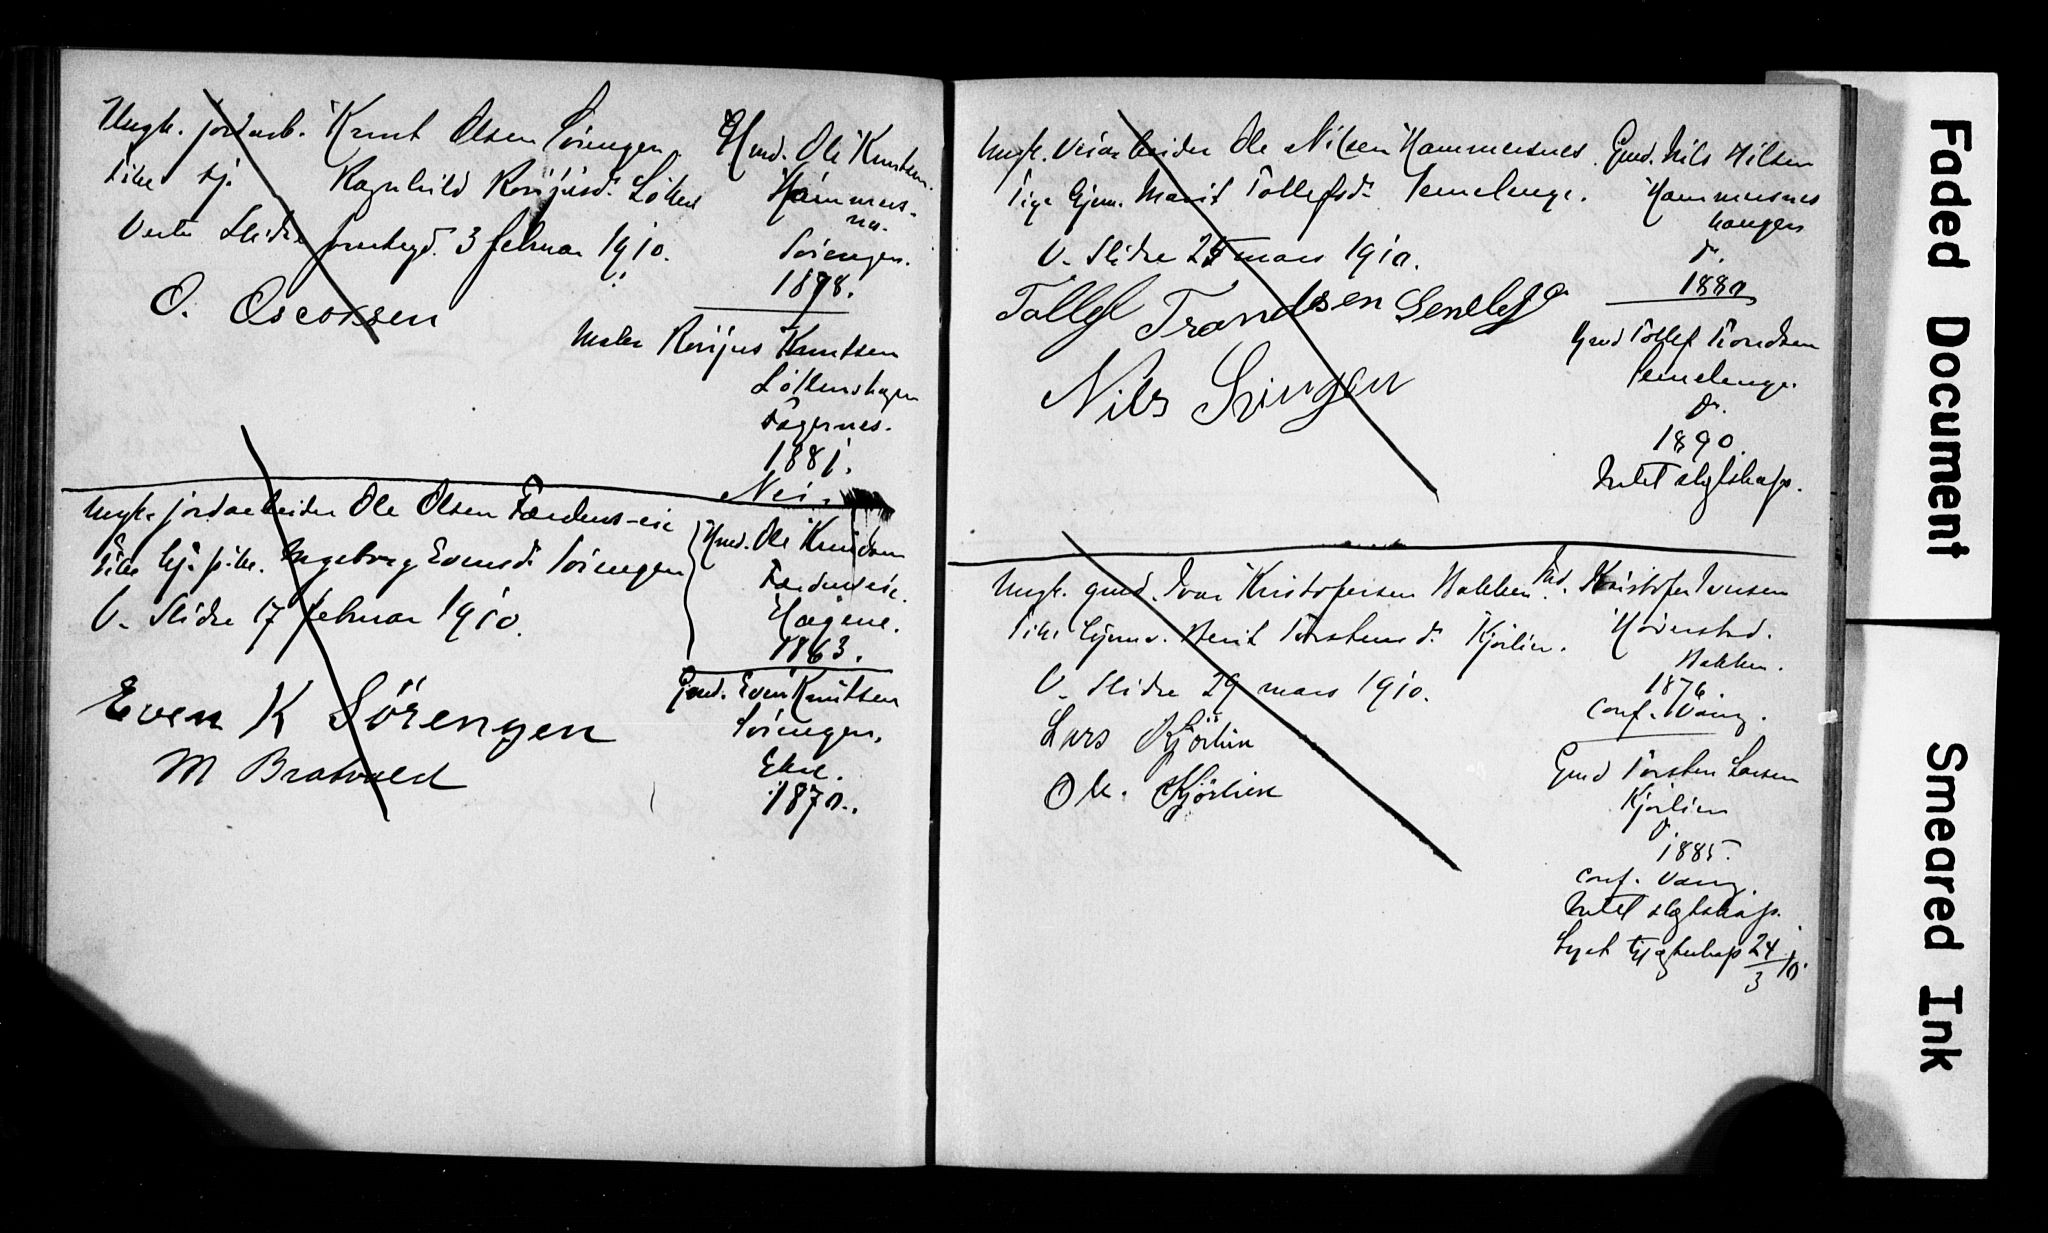 Ungk. jordarb. Knut Olsen Sörengen.
Pike hj. Ragnhild Rönjusd. Lökken
Vestre Slidre prestegd. 3 februar 1910.
O. Oscarssen
Gmd. Ole Knutsen
Hammers-
nes.
Sörengen.
1878.
Maler Rönjus Knutsen
Lökkenshagen
Fagernes.
1881.
Nei.
Ungk. jordarbeider Ole Olsen Færdens-eie
Pike hj. pike. Ingeborg Evensd. Sörengen
V. Slidre 17 februar 1910.
Even K Sörengen
M Bratvold
Hmd. Ole Knudsen
Færdenseie.
Hagene.
1863.
Gmd. Even Knutsen
Sörengen.
Ekre.
1870.
Ungk. veiarbeider Ole Nilsen Hammersnes.
Pige hjem. Marit Tollefsd. Semelenge.
V. Slidre 25 mars 1910.
Tollef Trondsen
Nils
Gmd. Nils Nilsen
Hammersnes
haugen
do.
1880
Gmd Tollef Trondsen
Semelenge.
do.
1890.
Intet slegtskap.
Ungk. gmd. Ivar Kristofersen Bakken.
Pike hjemv. Berit Torstensd. Kjörlien.
V. Slidre 29 mars 1910.
Lars Kjörlien
Ole. Kjörlien
Kristofer Iversen
Höverstad.
Bakken.
1876.
Conf. Vang.
Gmd Torsten Larsen
Kjörlien
do.
1885.
Conf. Vang.
Intet slegtskap.
Lyst til egteskap 24/3 10.
Faded Document
Smeared Ink